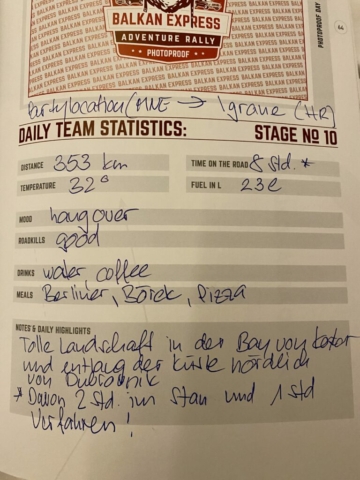 BALKAN EXPRESS
ADVENTURE RALLY
• PHOTOPROOF •
PHOTOPROOF DAY
Partylocation (MNE → Igrane (HR)
DAILY TEAM STATISTICS: STAGE № 10
DISTANCE 353 km TIME ON THE ROAD 8 Std. *
TEMPERATURE 32° FUEL IN L 23l
MOOD hangover
ROADKILLS good
DRINKS water coffee
MEALS Berliner, Börek, Pizza
NOTES & DAILY HIGHLIGHTS
Tolle Landschaft in der Bay von Kotor
und entlang der Küste nördlich
von Dubrovnik
* Davon 2 Std. im Stau und 1 Std
Verfahren!